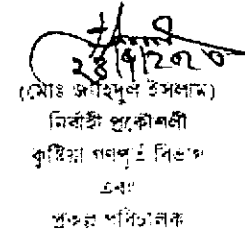 ২৪/৭/২০২০
(মোঃ জাহিদুল ইসলাম)
নির্বাহী প্রকৌশলী
কুষ্টিয়া গণপূর্ত বিভাগ
এবং
প্রকল্প পরিচালক